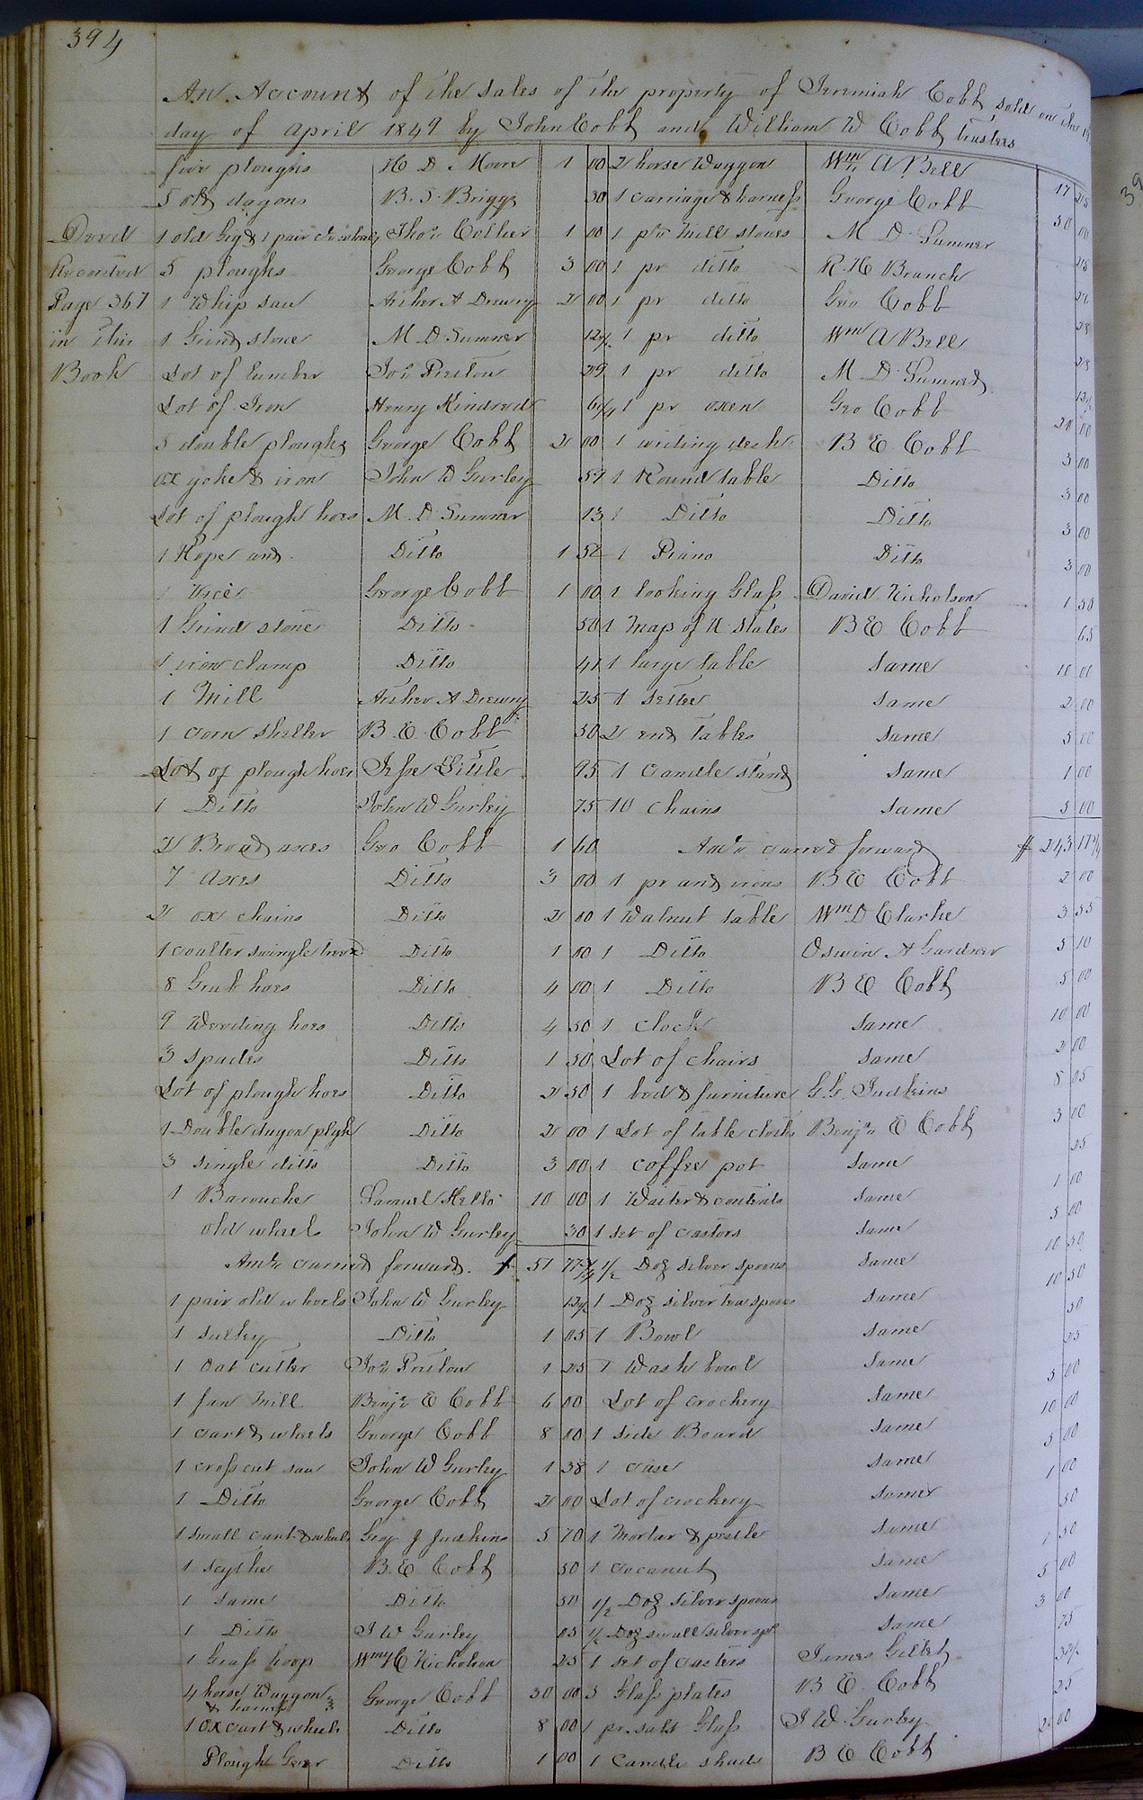 394
An Account of the sales of the property of Jeremiah Cobb sold on the
day of April 1849 by John Cobb and William W Cobb trustees
Deed
Recorded
Page 367
in this
Book
five ploughs H D Moore 1 00
5 old dagons B. S. Briggs 30
1 old Gig & 1 pair Thos Collier 1 00
5 ploughs George Cobb 3 00
1 Whip saw Archer A Drewry 2 00
1 Grind stone M D Sumner 12½
Lot of lumber Jos Preston 29
Lot of Iron Henry Kindred 6¼
5 double ploughs George Cobb 2 00
ox yoke & iron John W Gurley 57
Lot of plough hoes M. D Sumner 13
1 Rope and Ditto 1 52
1 Vice George Cobb 1 00
1 Grind stone Ditto 50
1 iron clamp Ditto 41
1 Mill Archer A Drewry 25
1 corn sheller B. E. Cobb 50
Lot of plough hoes Jesse Little 95
1 Ditto John W Gurley 75
2 Broad axes Geo Cobb 1 60
7 Axes Ditto 3 00
2 ox chains Ditto 2 00
1 coulter swingle tree Ditto 1 00
8 Grub hoes Ditto 4 00
9 Weeding hoes Ditto 4 50
3 spades Ditto 1 50
Lot of plough hoes Ditto 2 50
1 Double dagon plgh Ditto 2 00
3 single ditto Ditto 3 00
1 Barouche Samuel Kello 10 00
old wheels John W Gurley 30
Amt carried forward. 51 77¾
1 pair old wheels John W Gurley 12½
1 sulky Ditto 1 05
1 oat cutter Jos Preston 1 25
1 fan Mill Benja E Cobb 6 00
1 cart & wheels George Cobb 8 00
1 cross cut saw John W Gurley 1 38
1 Ditto George Cobb 2 00
1 small cart & wheels Geo J Judkins 5 70
1 scythe B. E Cobb 50
1 same Ditto 50
1 Ditto J W Gurley 05
1 Grass hoop C Nicholson 25
4 horse Waggon & harness George Cobb 30 00
1 ox cart & wheels Ditto 8 00
Plough Gear Ditto 1 00
2 horse Waggon Wm A Bell 17 25
1 carriage & harness George Cobb 50 00
1 pr Mill stones M D Sumner 25
1 pr ditto R H Branch 26
1 pr ditto Geo Cobb 28
1 pr ditto Wm A Bell 28
1 pr ditto M D Sumner 12½
1 pr oxen Geo Cobb 20 00
1 writing desk B E Cobb 3 00
1 Round table Ditto 3 00
1 Ditto Ditto 3 00
1 Piano Ditto 3 00
1 looking Glass David Nicholson 1 50
1 Map of U States B E Cobb 65
1 large table same 10 00
1 settee same 2 00
2 end tables same 5 00
1 candle stand same 1 00
10 chairs same 5 00
Amt carried forward $ 243 17¾
1 pr and irons B E Cobb 2 00
1 Walnut table Wm D Clarke 3 55
1 Ditto Oswin A Gardner 5 10
1 Ditto B E Cobb 5 00
1 clock same 10 00
Lot of chairs same 2 00
1 bed & furniture G. G. Judkins 8 05
1 Lot of table cloths Benja E Cobb 3 00
1 coffee pot same 25
1 Waiter & contents same 1 00
1 set of castors same 5 00
½ Doz silver spoons same 10 50
1 Doz silver tea spoons same 10 50
1 Bowl same 50
1 Wash bowl same 25
Lot of crockery same 5 00
1 side Board same 10 00
1 case same 5 00
Lot of crockery same 1 00
1 Mortar & pestle same 50
1 cocanut same 1 50
½ Doz silver spoons same 5 00
½ Doz small silver sp same 3 00
1 set of casters James Gillet 75
3 Glass plates B E. Cobb
1 pr salt Glass J W Gurley 25
1 candle shade B E Cobb 2 00